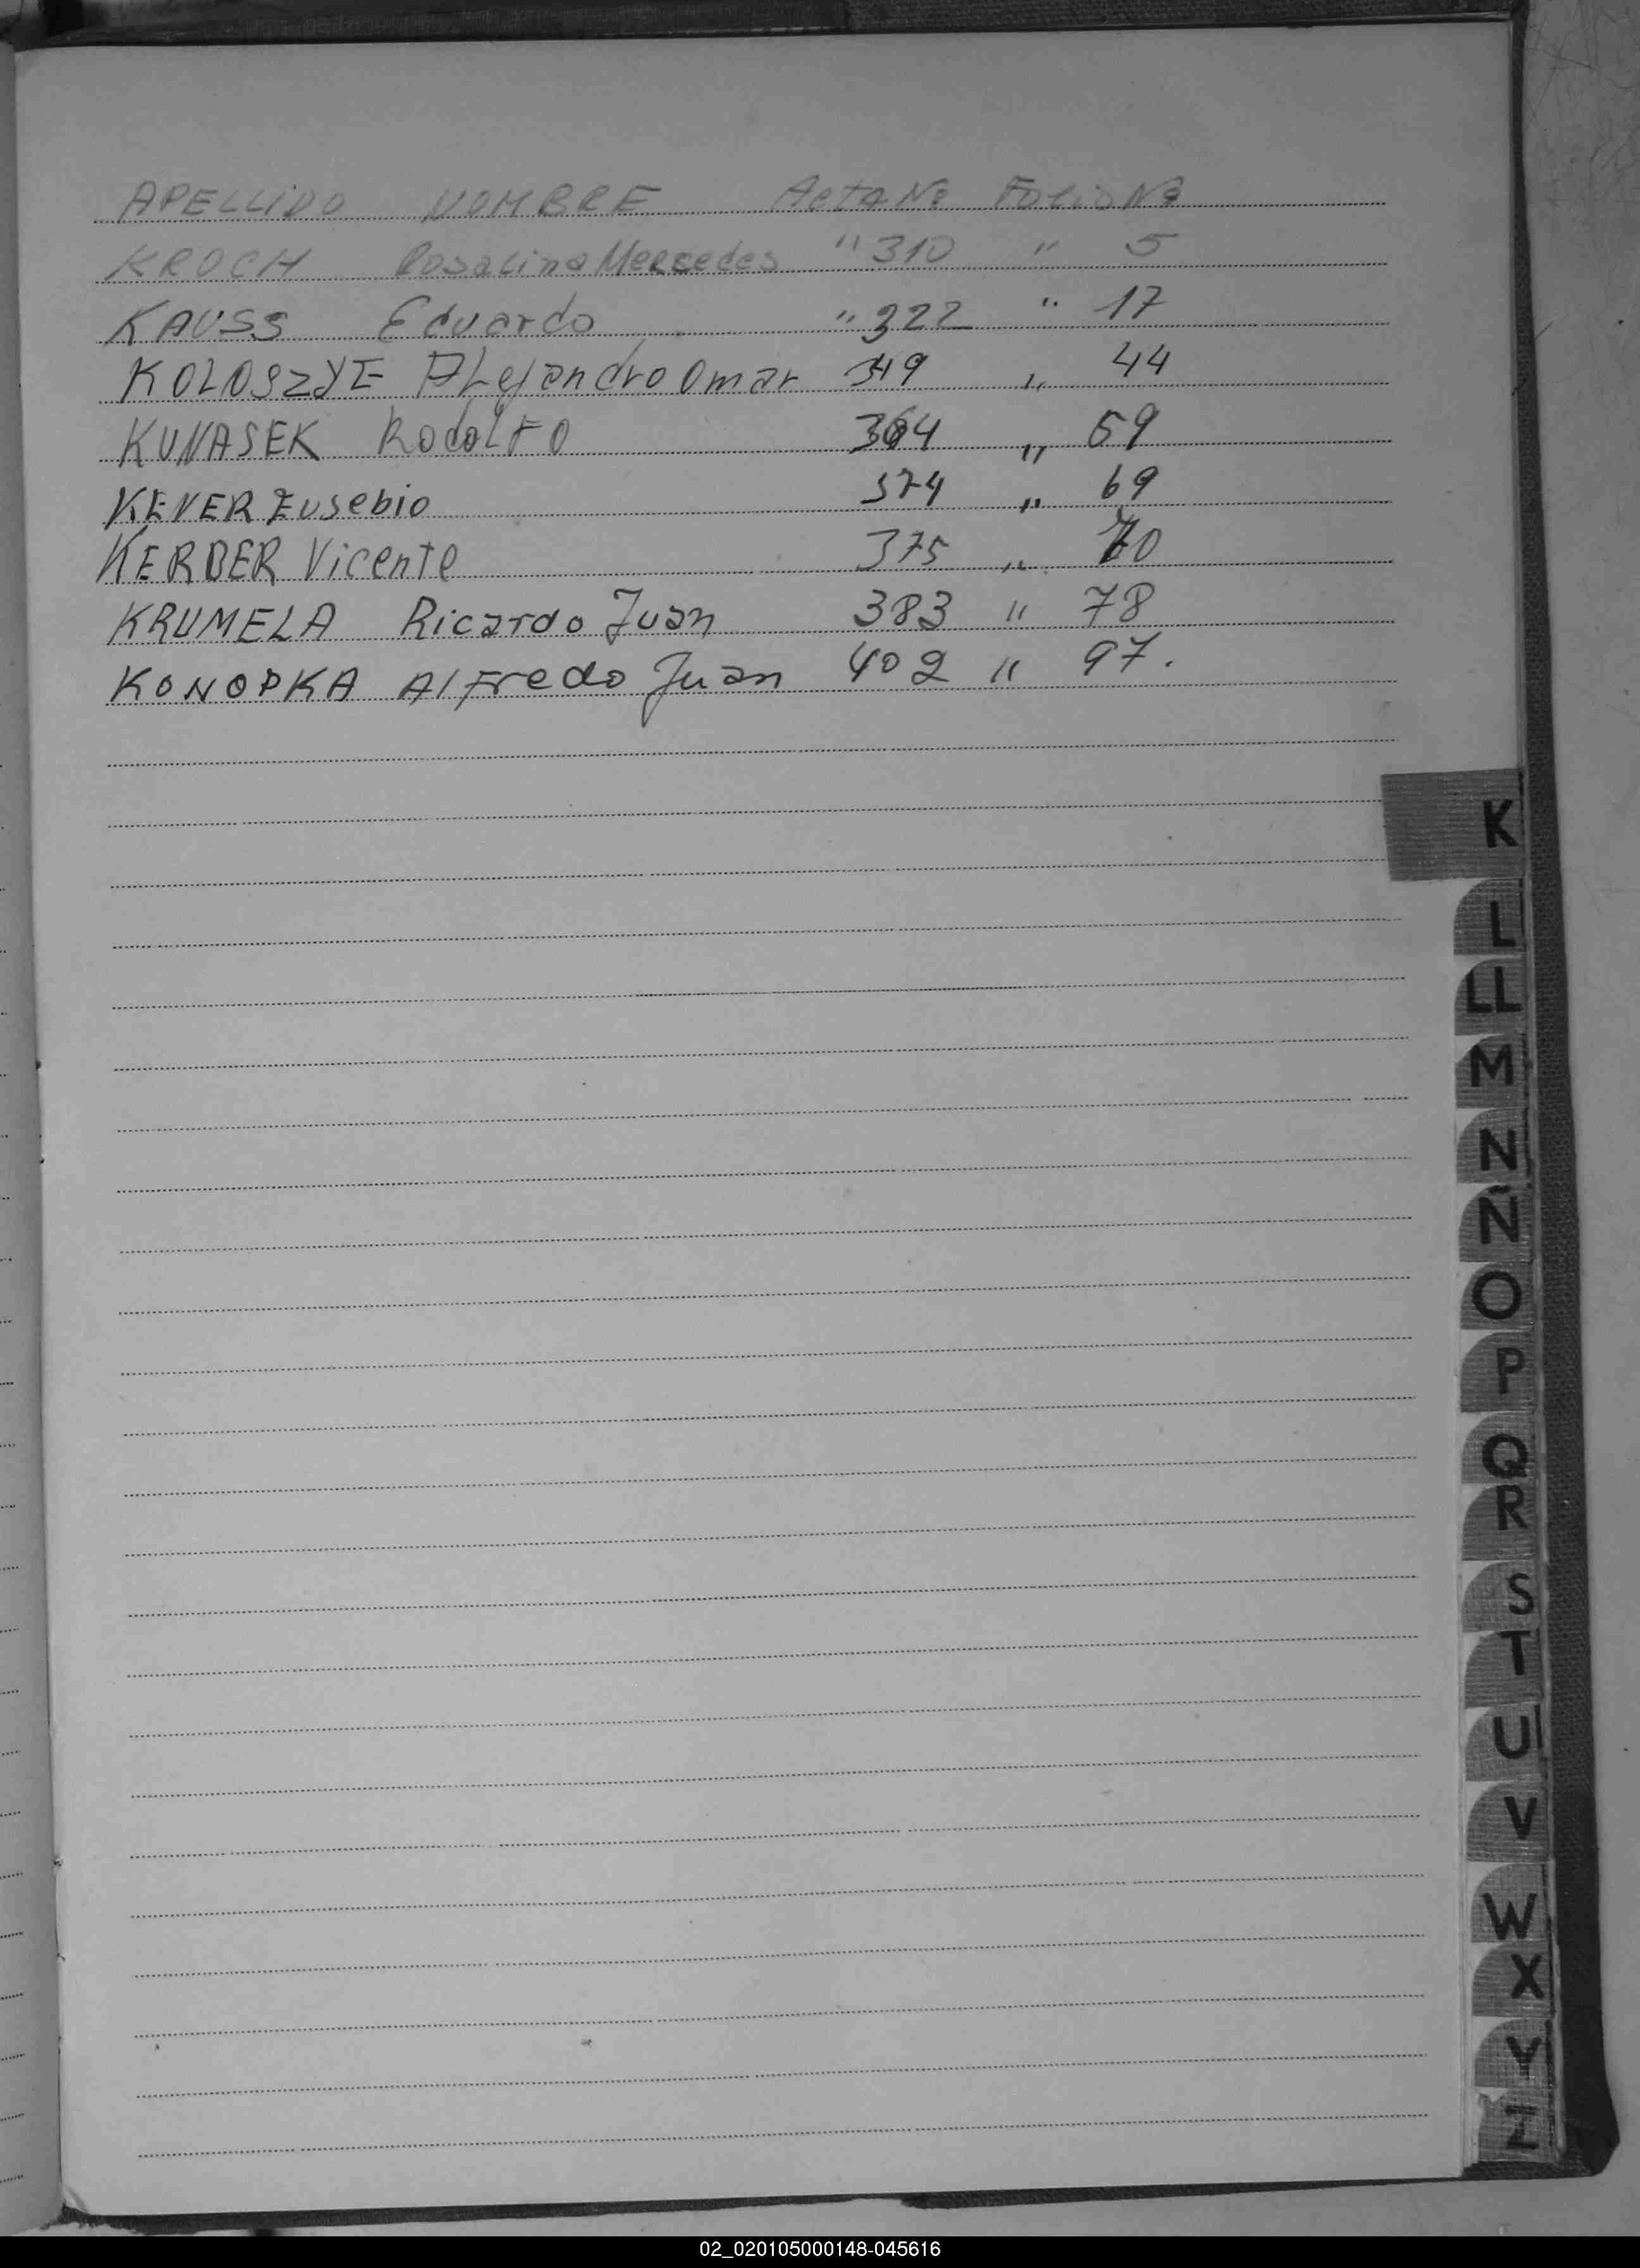 APELLIDO NOMBRE ACTA Nº FOLIO Nº
KROCH Rosalina Mercedes " 310 " 5
KAUSS Eduardo " 322 " 17
KOLOSZYE ALejandro Omar 349 " 44
KUNASEK RodoLFO 364 " 59
KENER Eusebio 374 " 69
KERBER Vicente 375 " 70
KRUMELA Ricardo Juan 383 " 78
KONOPKA AlFredo Juan 402 " 97.
K
L
LL
M
N
Ñ
O
P
Q
R
S
T
U
V
W
X
Y
Z
02_020105000148-045616